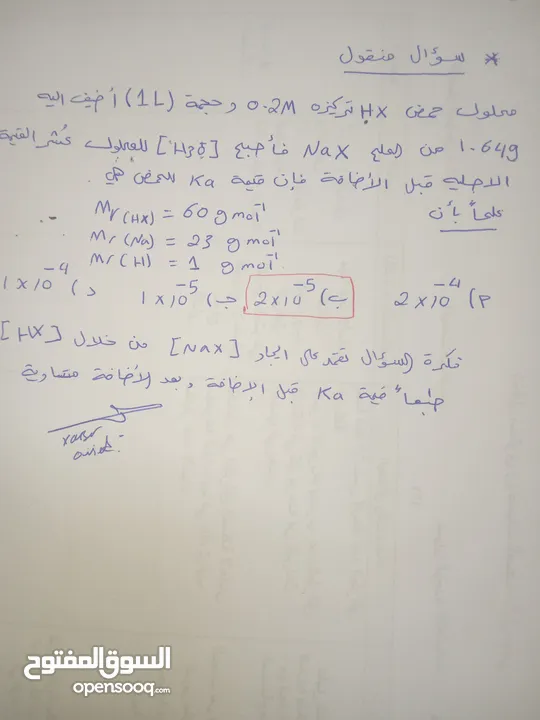 * سؤال منقول
محلول حمض HX تركيزه 0.2M وحجمه (1L) أضيف اليه
1.64g من الملح NaX فأصبح [H3O] للمحلول عُشر القيمة
الاصلية قبل الأضافة فإن قيمة Ka للحمض هي .
علماً بأن
Mr(HX) = 60 g mol⁻¹
Mr(Na) = 23 g mol⁻¹
Mr(H) = 1 g mol⁻¹
أ) 2×10⁻⁴ ب) 2×10⁻⁵ جـ) 1×10⁻⁵ د) 1×10⁻⁴
فكرة السؤال تعتمد على ايجاد [NaX] من خلال [HX]
طبعاً قيمة Ka قبل الإضافة وبعد الأضافة متساوية
السوق المفتوح
opensooq.com